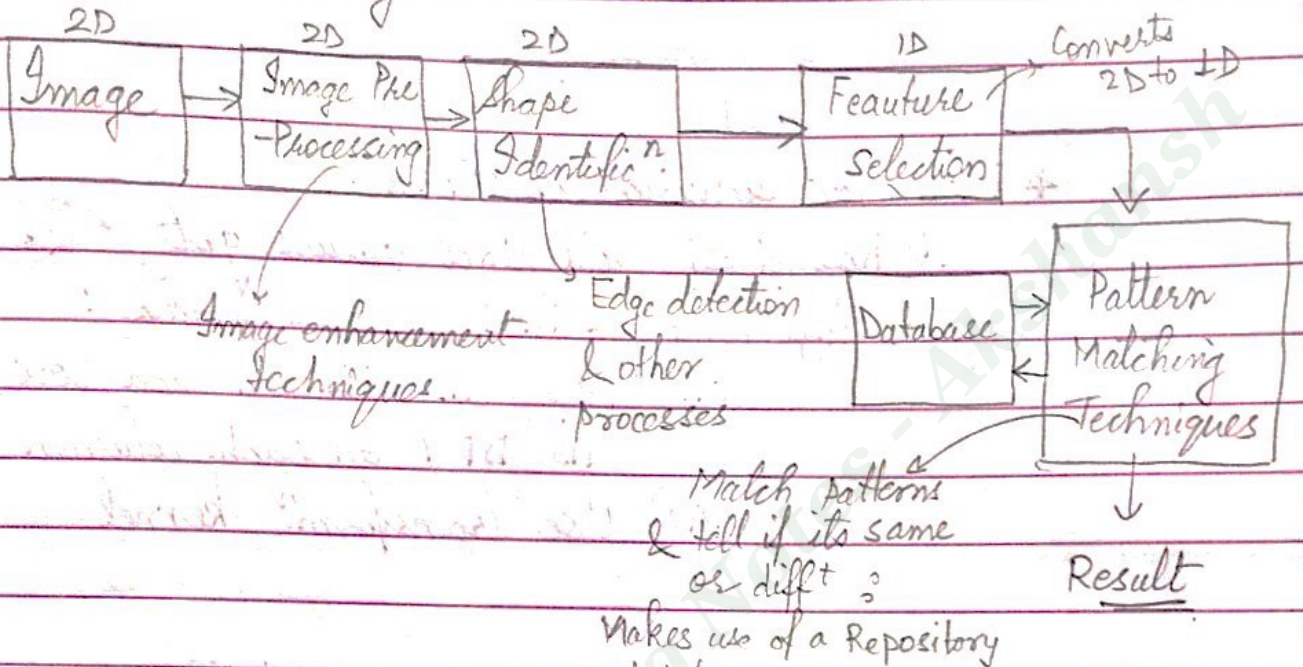 2D
Image
2D
Image Pre
-Processing
2D
Shape
Identificⁿ.
1D
Feauture
Selection
Converts
2D to 1D
Image enhancement
techniques.
Edge detection
& other
processes
Database
Pattern
Matching
Techniques
Match patterns
& tell if its same
or diffᵗ :
Makes use of a Repository
Result
Notes - Akshansh